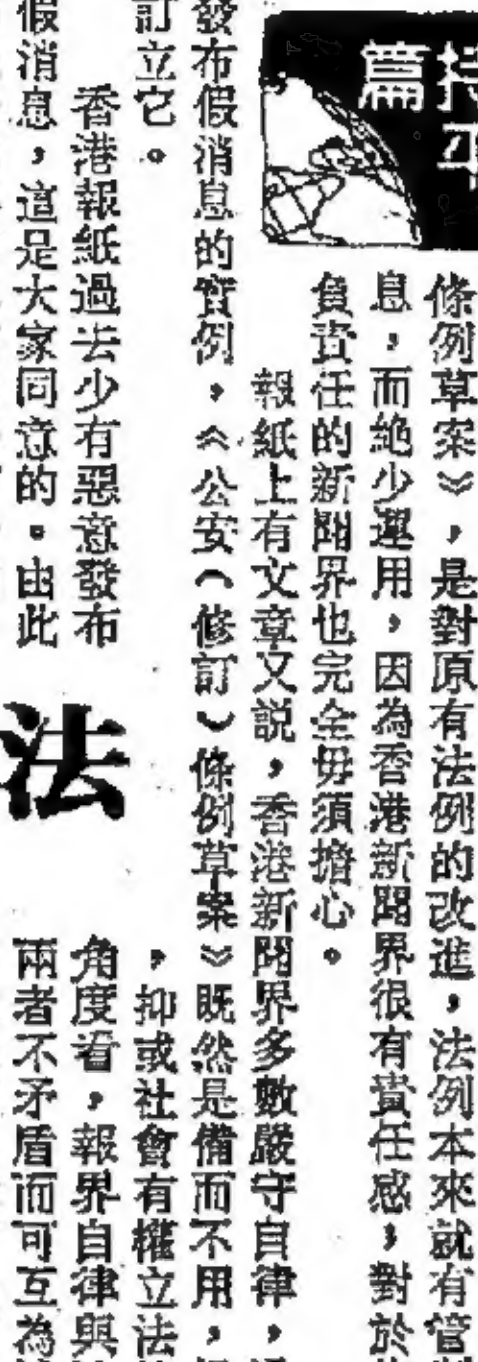 持平
篇
條例草案》，是對原有法例的改進，法例本來就有管
息，而絶少運用，因為香港新聞界很有責任感，對於
負責任的新聞界也完全毋須擔心。
報紙上有文章又説，香港新聞界多數嚴守自律，
發布假消息的實例，《公安（修訂）條例草案》既然是備而不用，
訂立它。
香港報紙過去少有惡意發布
假消息，這是大家同意的。由此
法
，抑或社會有權立法
角度看，報界自律與
兩者不矛盾而可互為